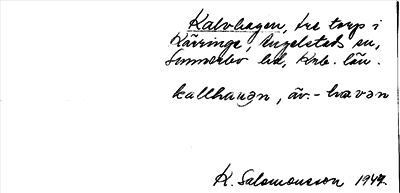 Kalvhagen, tre torp i
Kärringe, Engelstads sn,
Sunnerbo hd, Krb. län.
kallhaugn, äv. - havən
K. Salomonsson 1947.